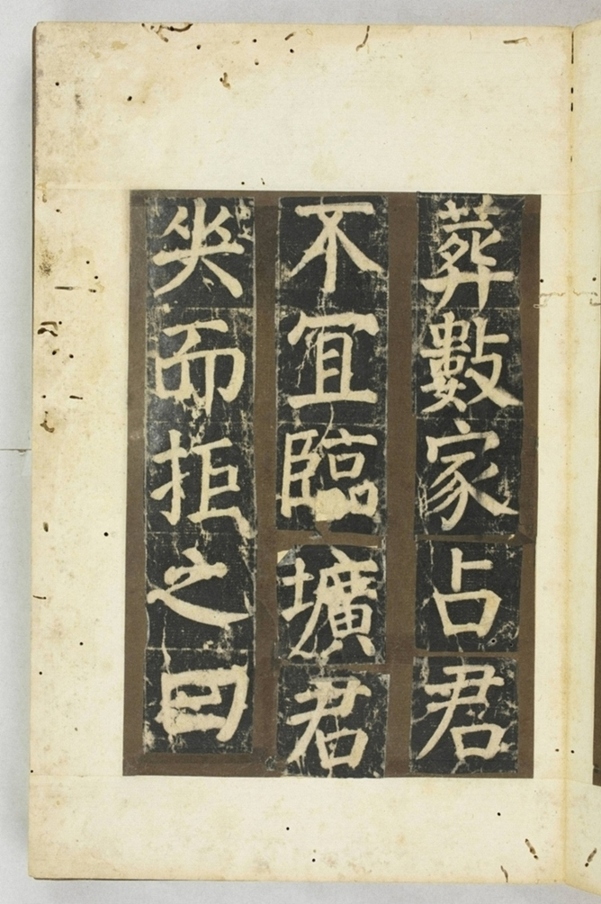 葬數家占君
不冝臨壙君
哭而拒之曰